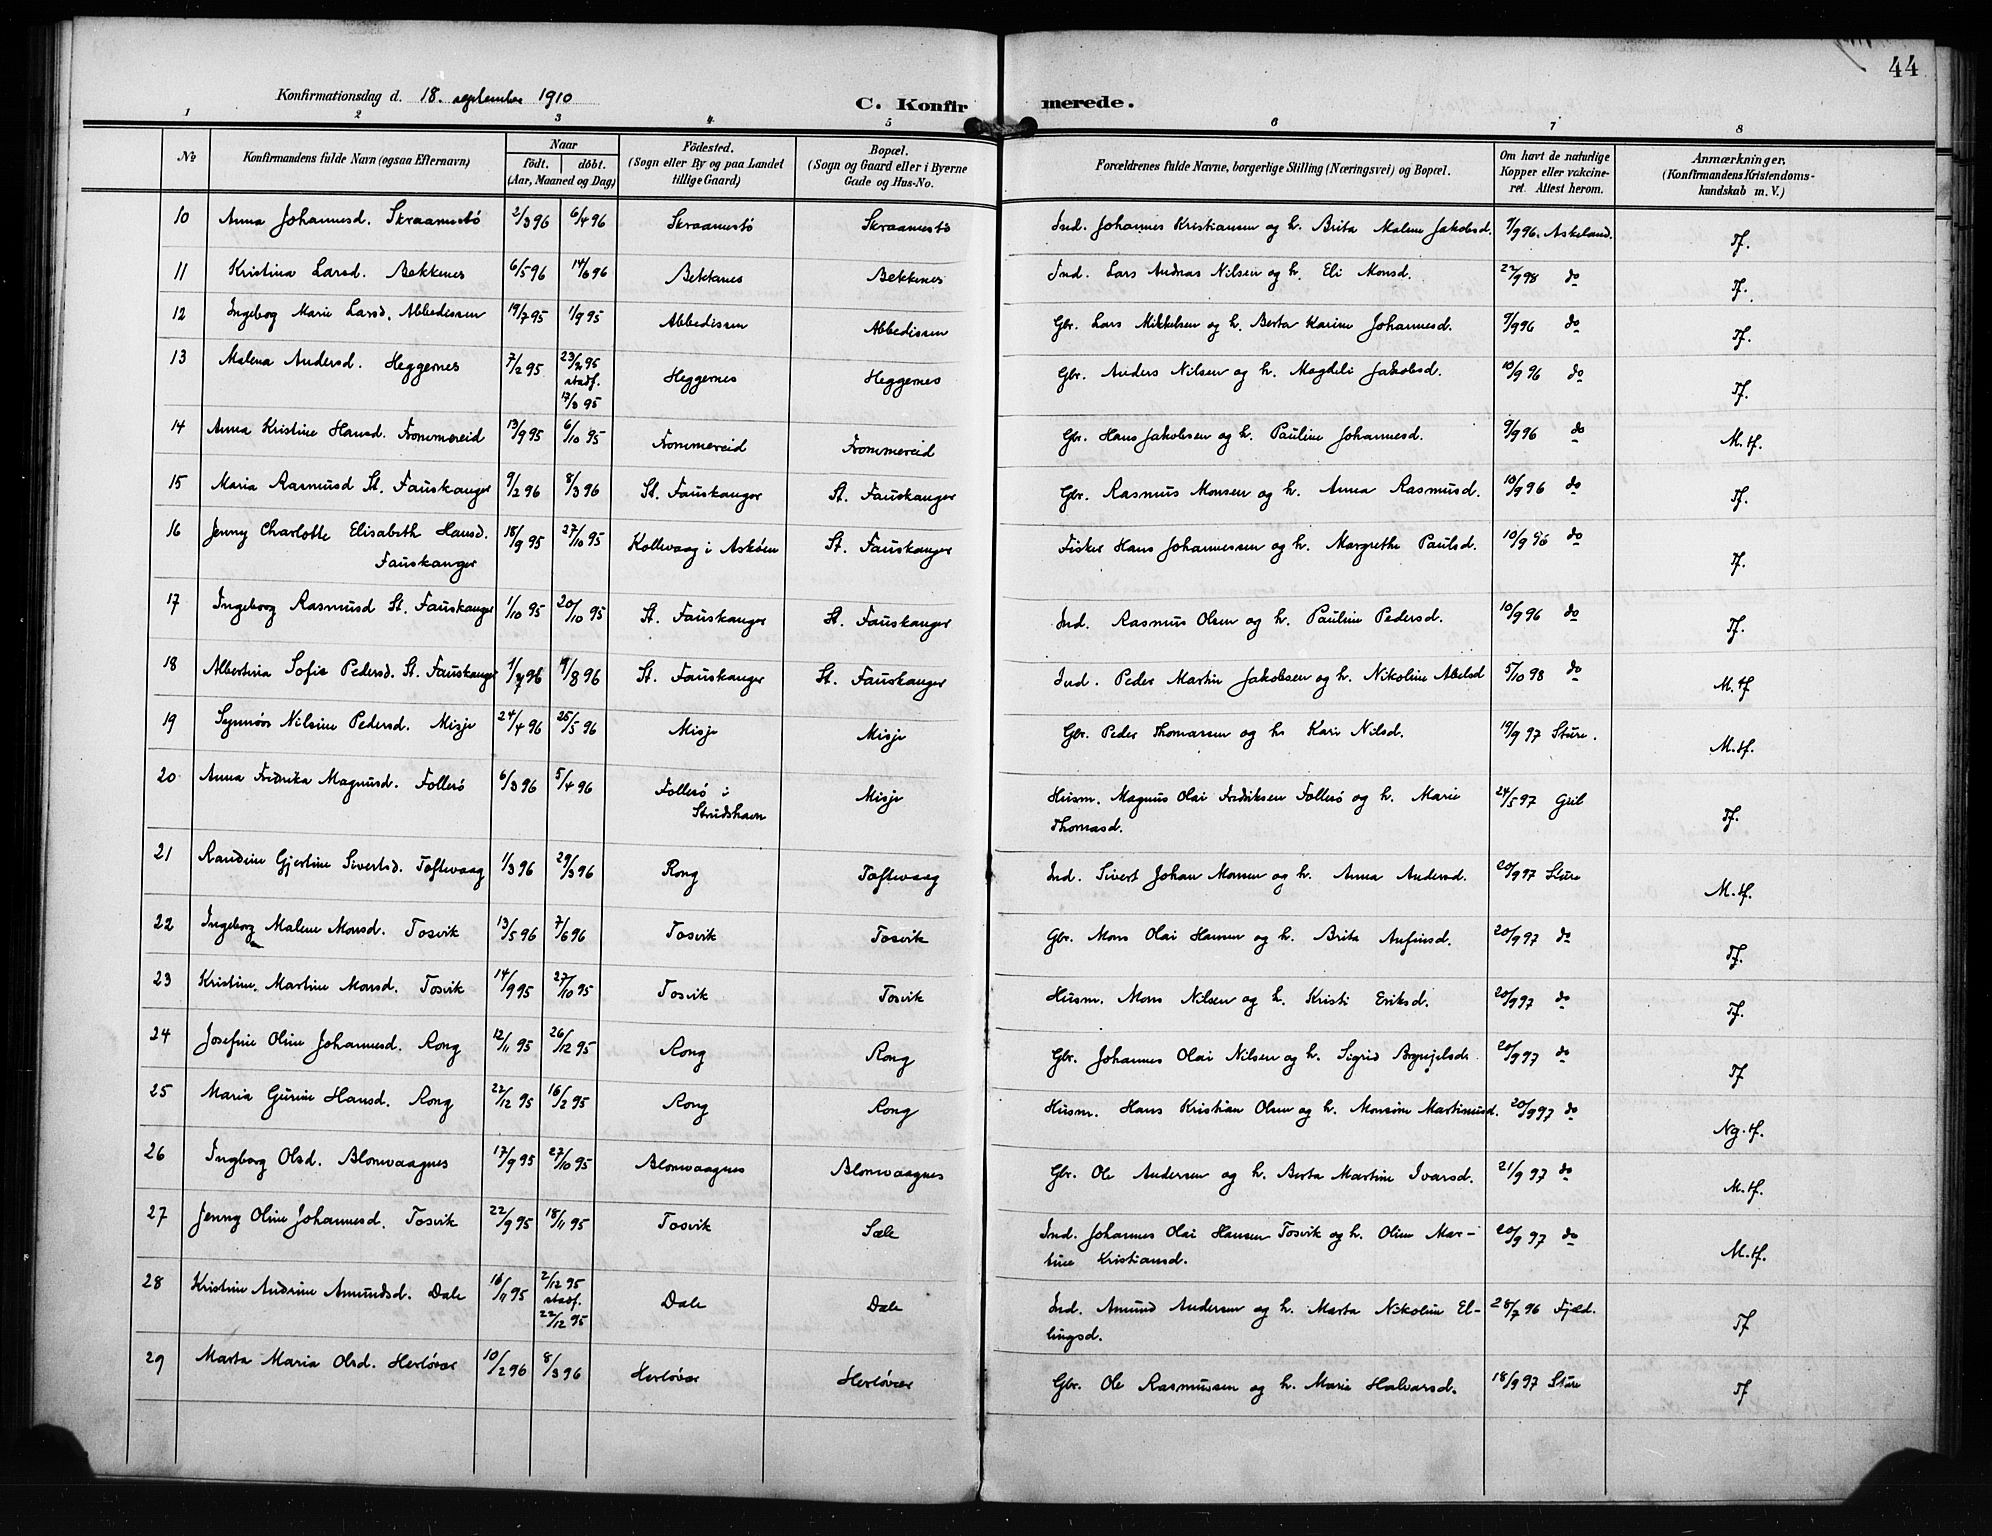 44
Konfirmationsdag d. 18. september 1910
C. Konfirmerede.
1 2 3 4 5 6 7 8
No
Konfirmandens fulde Navn (ogsaa Efternavn)
Naar
født. døbt.
(Aar, Maaned og Dag)
Fødested.
(Sogn eller By og paa Landet
tillige Gaard)
Bopæl.
(Sogn og Gaard eller i Byerne
Gade og Hus-No.
Forældrenes fulde Navne, borgerlige Stilling (Næringsvei) og Bopæl.
Om havt de naturlige
Kopper eller vakcine-
ret. Attest herom.
Anmærkninger.
(Konfirmandens Kristendoms-
kundskab m. V.)
10 Anna Johannesd. Skraamestø 2/3 96 6/4 96 Skraamestø Skraamestø Ind. Johannes Kristiansen og h. Brita Malene Jakobsd. 9/9 96. Askeland. Tf.
11 Kristina Larsd. Bekkenes 6/5 96 14/6 96 Bekknes Bekkenes Ind. Lars Andreas Nilsen og h. Eli Monsd. 22/9 98 do Tf.
12 Ingeborg Marie Larsd. Abbedissen 19/7 95 1/9 95 Abbedissen Abbedissen Gbr. Lars Mikkelsen og h. Berta Karine Johannesd. 9/9 96 do Tf.
13 Malena Andersd. Heggernes 7/2 95 23/2 95 stadf. 17/3 95 Heggernes Heggernes Gbr. Anders Nilsen og h. Magdeli Jakobsd. 10/9 96 do Tf.
14 Anna Kristine Hansd. Frommereid 13/9 95 6/10 95 Frommereid Frommereid Gbr. Hans Jakobsen og h. Pauline Johannesd. 9/9 96 do M.tf.
15 Maria Rasmusd St. Fauskanger 9/2 96 8/3 96 St. Fauskanger St. Fauskanger Gbr. Rasmus Monsen og h. Anna Rasmusd. 10/9 96 do Tf.
16 Jenny Charlotte Elisabeth Hansd. 18/9 95 27/10 95 Kollevaag i Askøen St. Fauskanger Fisker Hans Johannessen og h. Margrethe Paulsd. 10/9 96 do Tf.
Fauskanger
17 Ingeborg Rasmusd St. Fauskanger 1/10 95 20/10 95 St. Fauskanger St. Fauskanger Ind. Rasmus Olsen og h. Pauline Pedersd. 10/9 96 do Tf.
18 Albertina Sofie Pedersd. St. Fauskanger 1/7 96 /8 96 St. Fauskanger St. Fauskanger Ind. Peder Martin Jakobsen og h. Nikoline Abelsd 5/10 98 do M.tf
19 Synnøv Nilsine Pedersd. Misje 24/4 96 25/5 96 Misje Misje Gbr. Peder Thomassen og h. Kari Nilsd. 19/9 97 Sture. M.tf.
20 Anna Fredrika Magnusd. Follesø 6/3 96 5/4 96 Follesø i Misje Husm. Magnus Olai Fredriksen Follesø og h. Marie 24/5 97 Tf.
Strudshavn Thomasd.
21 Randine Gjertine Sivertsd. Toftevaag 1/3 96 29/3 96 Rong Toftevaag Ind. Sivert Johan Monsen og h. Anna Andersd. 20/9 97 Sture M.tf.
22 Ingeborg Malene Monsd. Tosvik 13/5 96 7/6 96 Tosvik Tosvik Gbr. Mons Olai Hansen og h. Brita Anfinsd. 20/9 97 do Tf.
23 Kristine Martine Monsd. Tosvik 14/9 95 27/10 95 Tosvik Tosvik Husm. Mons Nilsen og h. Kristi Eriksd. 20/9 97 do Tf.
24 Josefine Oline Johannesd. Rong 12/11 95 26/12 95 Rong Rong Gbr. Johannes Olai Nilsen og h. Sigrid Brynjelsd. 20/9 97 do Tf
25 Maria Gurine Hansd. Rong 22/12 95 16/2 95 Rong Rong Husm. Hans Kristian Olsen og h. Monsine Martinusd. 20/9 97 do Ng.tf.
26 Ingborg Olsd. Blomvaagnes 17/9 95 27/10 95 Blomvaagnes Blomvaagnes Gbr. Ole Andersen og h. Berta Martine Ivarsd. 21/9 97 do M.tf.
27 Jenny Oline Johannesd. Tosvik 22/9 95 18/11 95 Tosvik Sæle Ind. Johannes Olai Hansen Tosvik og h. Oline Mar- 20/9 97 do M.tf.
tine Kristiansd.
28 Kristine Andrine Amundsd. Dale 16/11 95 2/12 95 stadf. 22/12 95 Dale Dale Ind. Amund Andersen og h. Marta Nikoline El- 28/7 96 Fjeld. Tf
lingsd.
29 Marta Maria Olsd. Herløvær 10/2 96 8/3 96 Herløvær Herløvær Gbr. Ole Rasmussen og h. Marie Halvarsd. 18/9 97 Sture Tf